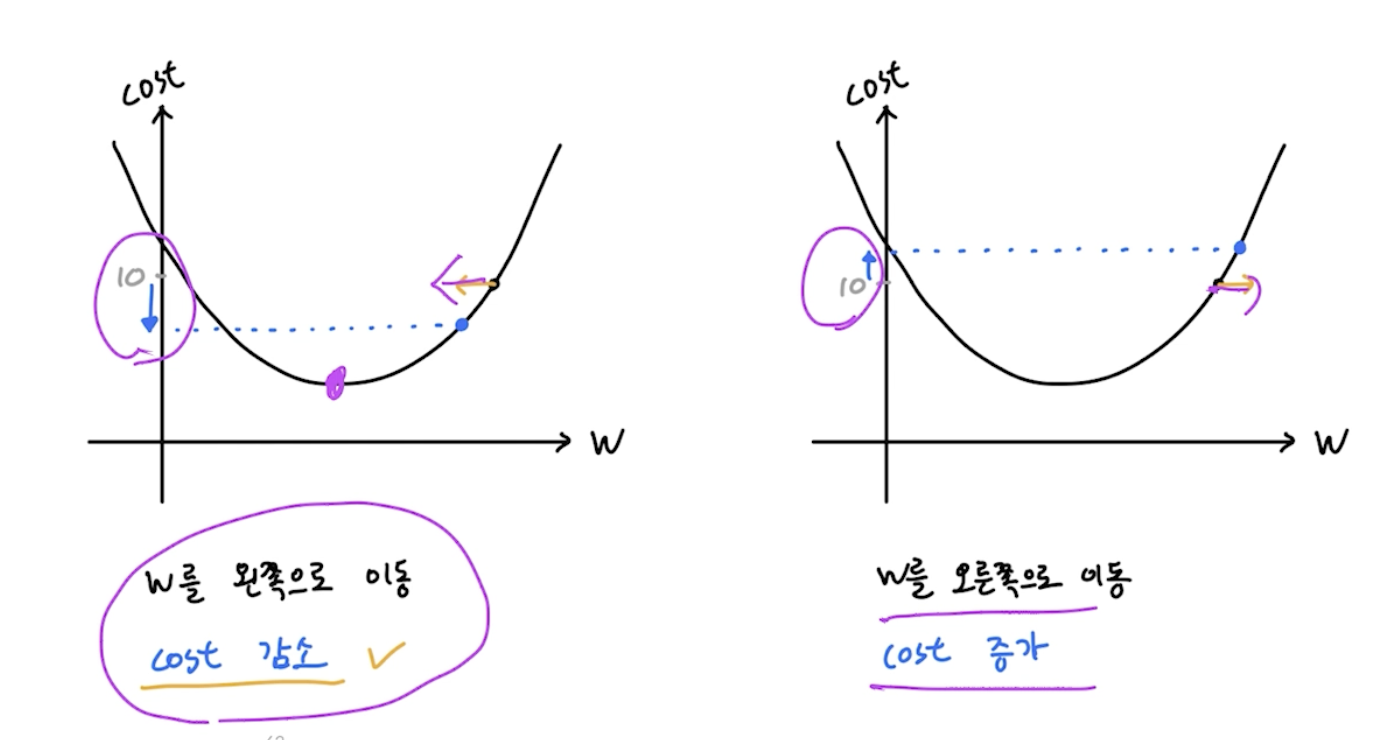 cost
10
W
W를 왼쪽으로 이동
cost 감소
cost
10
W
W를 오른쪽으로 이동
cost 증가